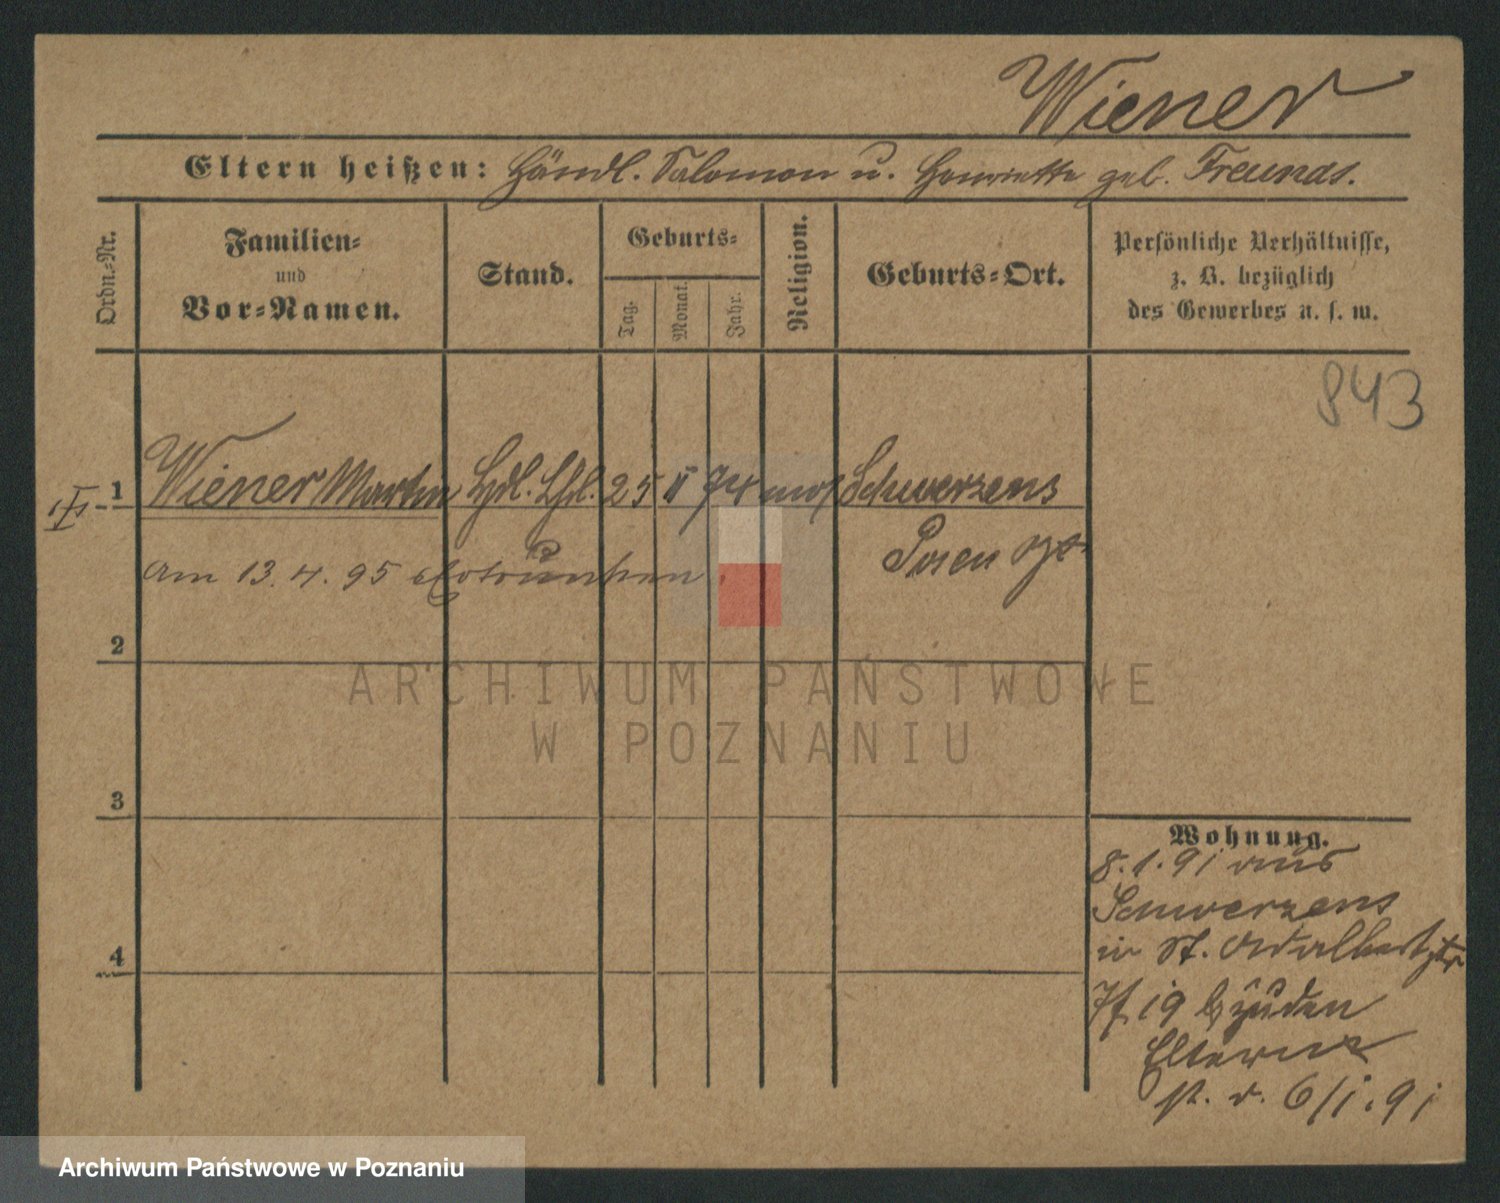 Wiener
Eltern heißen: Händl. Salomon u. Henriette geb. Freund
Ordn.-Nr.
Familien-
und
Vor-Namen.
Stand.
Geburts-
Tag.
Monat.
Jahr.
Religion.
Geburts-Ort.
Persönliche Verhältnisse,
z. B. bezüglich
des Gewerbes u. s. w.
843
1 Wiener Martin Hdl. Lhrl. 25 II 74 mos Schwersenz
Posen
am 13. 4. 95 ertrunken
2
ARCHIWUM PAŃSTWOWE
W POZNANIU
3
4
Wohnung.
8. 1. 91 aus
Schwersenz
in St. Adalbertstr
19 zu den
Eltern
6/1. 91
Archiwum Państwowe w Poznaniu